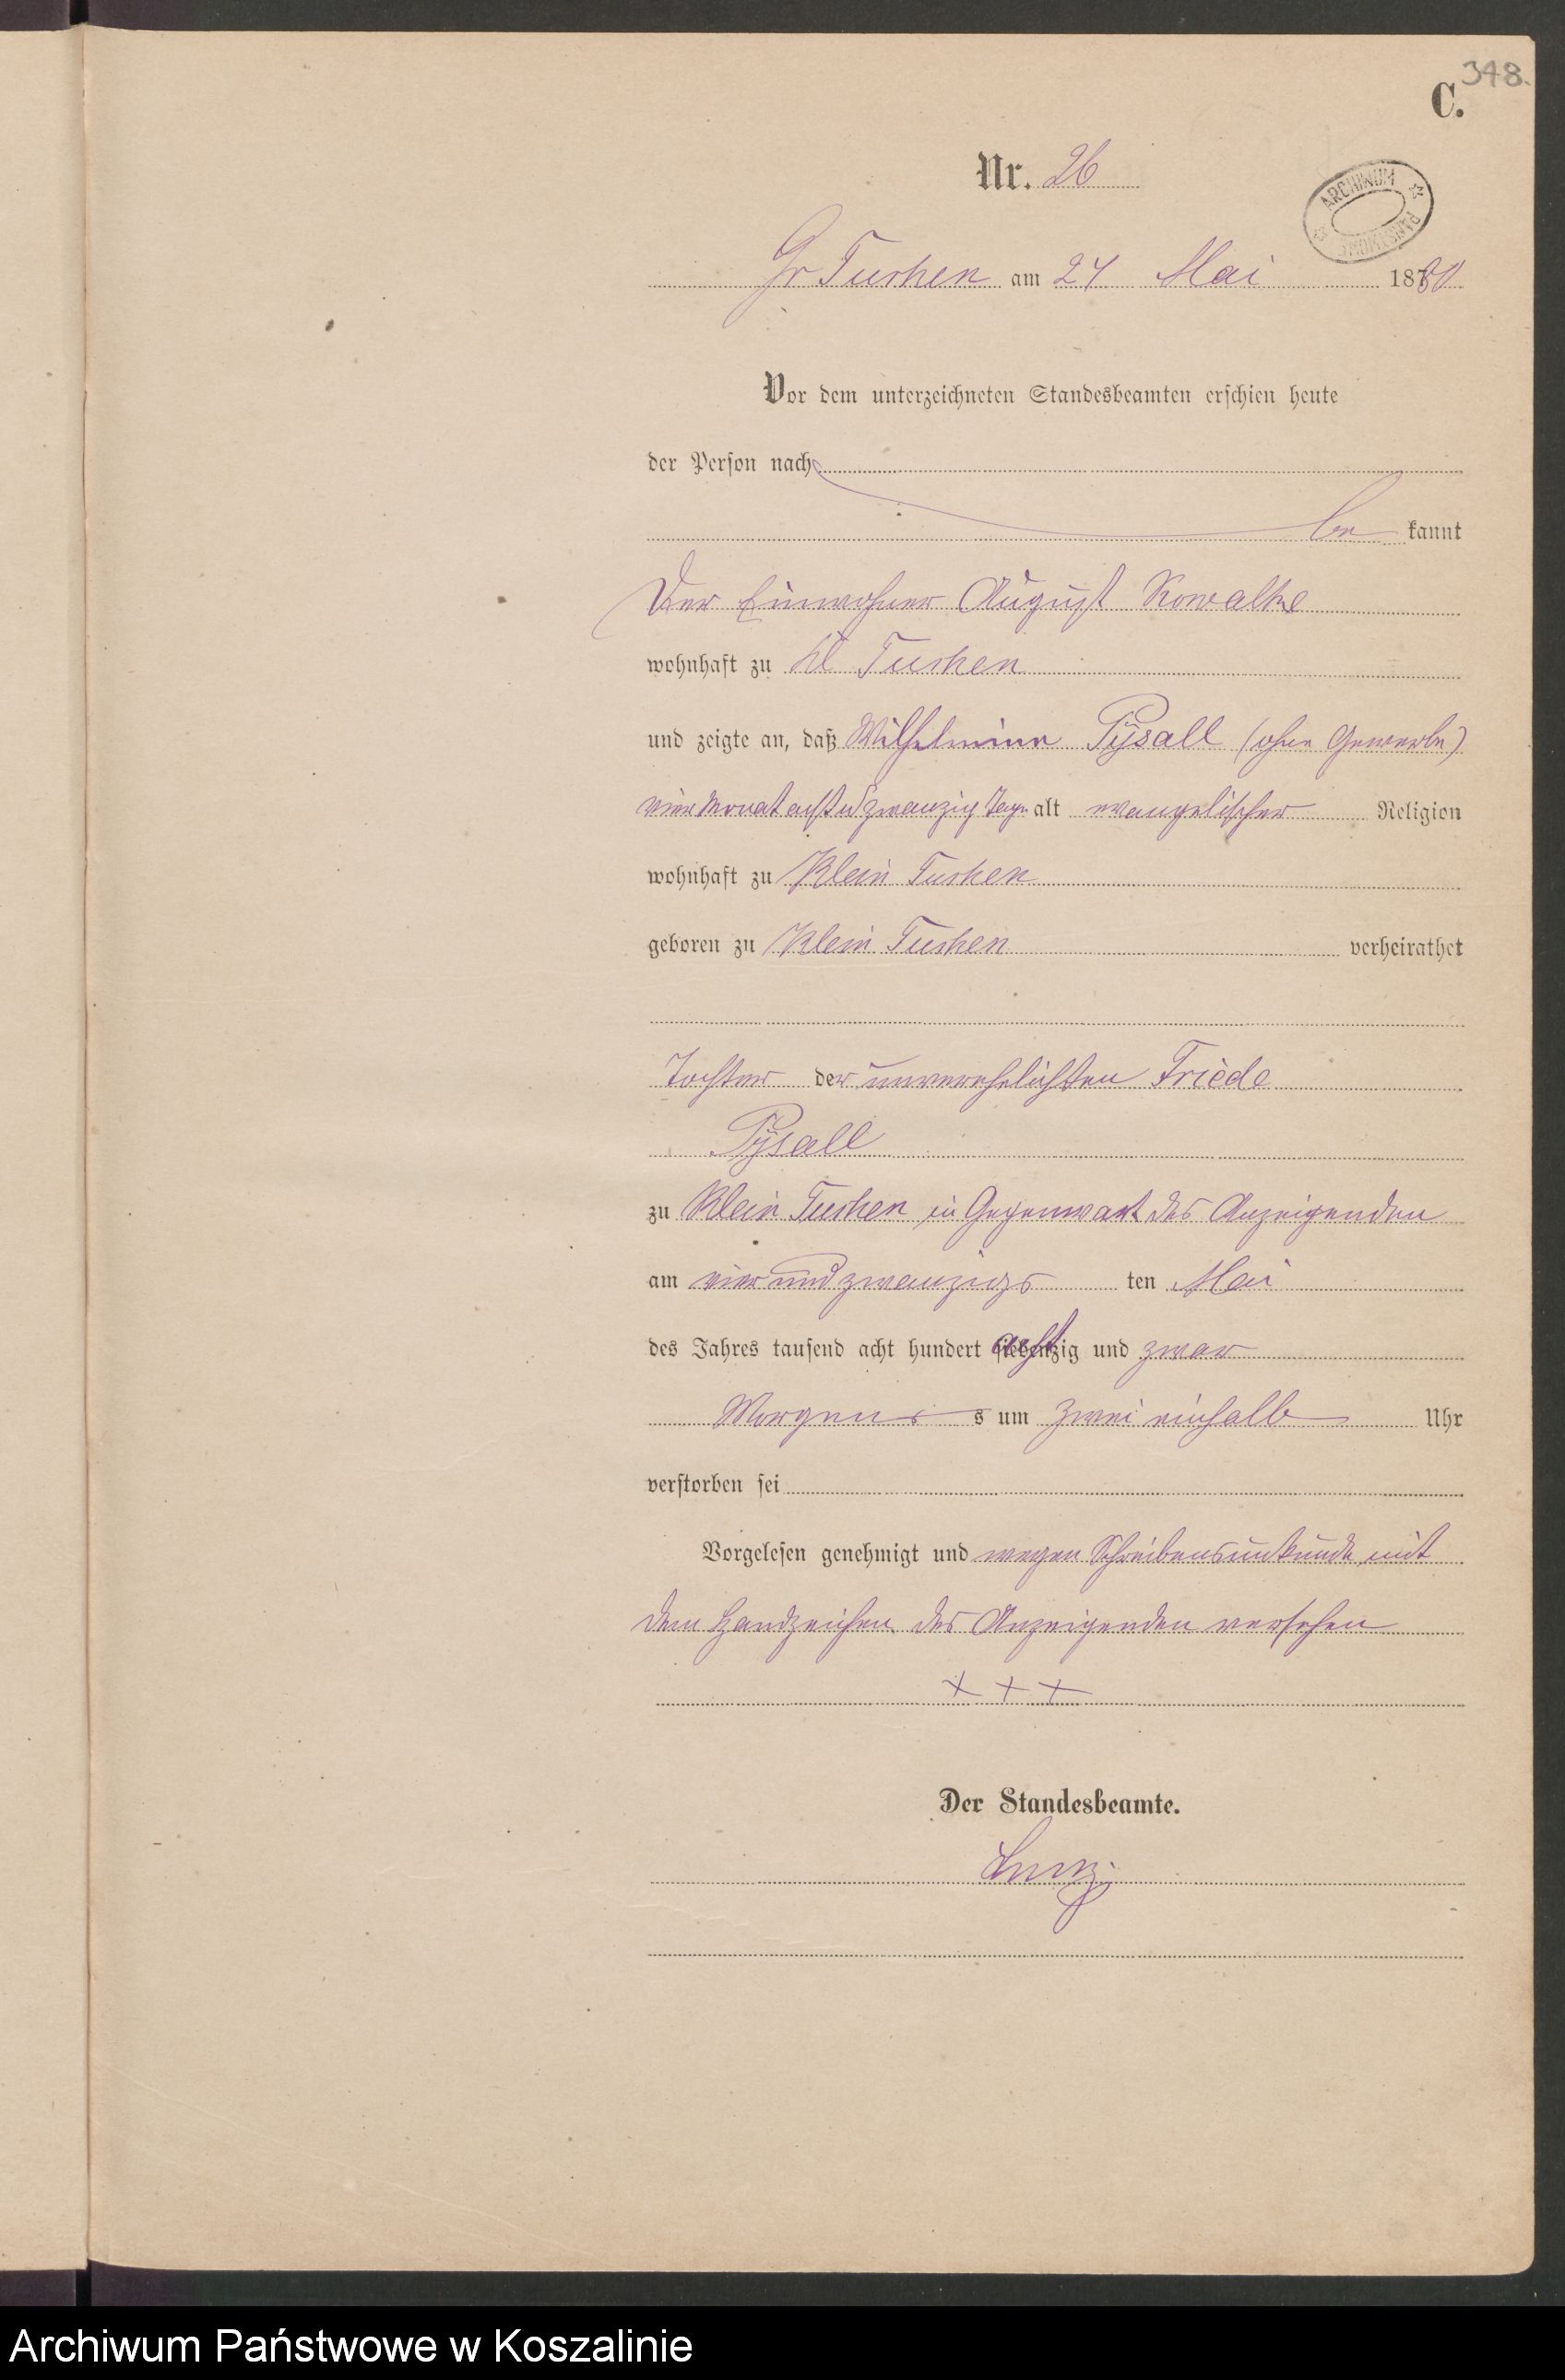 348.
C.
Nr. 26
ARCHIWUM PAŃSTWOWE
Gr Tuchen am 24 Mai 1880
Vor dem unterzeichneten Standesbeamten erschien heute
der Person nach
be kannt
Der Einwohner August Kowalke
wohnhaft zu Kl Tuchen
und zeigte an, daß Wilhelmine Pÿsall (ohne Gewerbe)
vier Monat acht u zwanzig Tage alt evangelischer Religion
wohnhaft zu Klein Tuchen
geboren zu Klein Tuchen verheirathet
Tochter der unverehelichten Friede
Pÿsall
zu Klein Tuchen in Gegenwart des Anzeigenden
am vier und zwanzigs ten Mai
des Jahres tausend acht hundert achtzig und zwar
Morgens s um zwei einhalb Uhr
verstorben sei
Vorgelesen genehmigt und wegen Schreibensunkunde mit
dem Handzeichen des Anzeigenden versehen
+ + +
Der Standesbeamte.
Archiwum Państwowe w Koszalinie